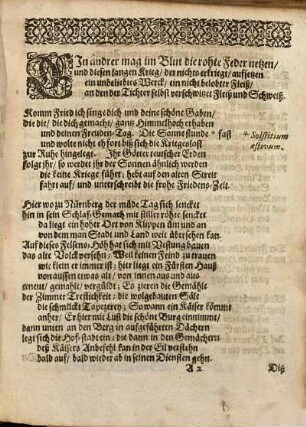 EIn andrer mag im Blut die rohte Feder netzen/
und diesen langen Krieg/ der nichts erkriegt/ aufsetzen
ein unbeliebtes Werck/ ein nicht belobter Fleiß/
an den der Tichter selbst verschwitzet Fleiß und Schweiß.
Komm Fried ich singe dich und deine schöne Gaben/
die die/ die dich gemacht/ gantz Himmelhoch erhaben
und deinen Freuden-Tag. Die Sonne stunde * fast
* Solstitium
æstivum.
und wolte nicht eh fort biß sich die Kriegeslast
zur Ruhe hingelegt. Jhr Götter teutscher Erden
folgt ihr/ so werdet ihr der Sonnen ähnlich werden
die keine Kriege führt; hebt auf den alten Streit
fahrt auf/ und unterschreibt die frohe Friedens-Zeit.
Hier wo zu Nürnberg der müde Tag sich lencket
hin in sein Schlaf-Gemach mit stiller röhte sencket
da liegt ein hoher Ort von Klippen um und an
von dem man Stadt und Land weit übersehen kan.
Auf dieses Felsens-Höh hat sich mit Vestung bauen
das alte Volck versehn; Weil keinen Feind zu trauen
wie klein er immer ist; hier liegt ein Fürsten Hauß
von aussen etwas alt/ von innen aus und aus
erneut/ gemahlt/ vergüldt; Es zieren die Gemählte
der Zimmer Trefflichkeit; die wolgebauten Säle
die schmückt Tapezerey; So wann ein Käiser kömmt
anher/ Er hier mit Lust die schöne Burg einnimmt/
dann unten an den Berg in aufgeführten Dächern
legt sich die Hof-stadt ein; die dann in den Gemächern
deß Käisers Anbefehl kan in der Eil verstehn
bald auf/ bald wieder ab in seinen Diensten gehn.
A 2
Diß